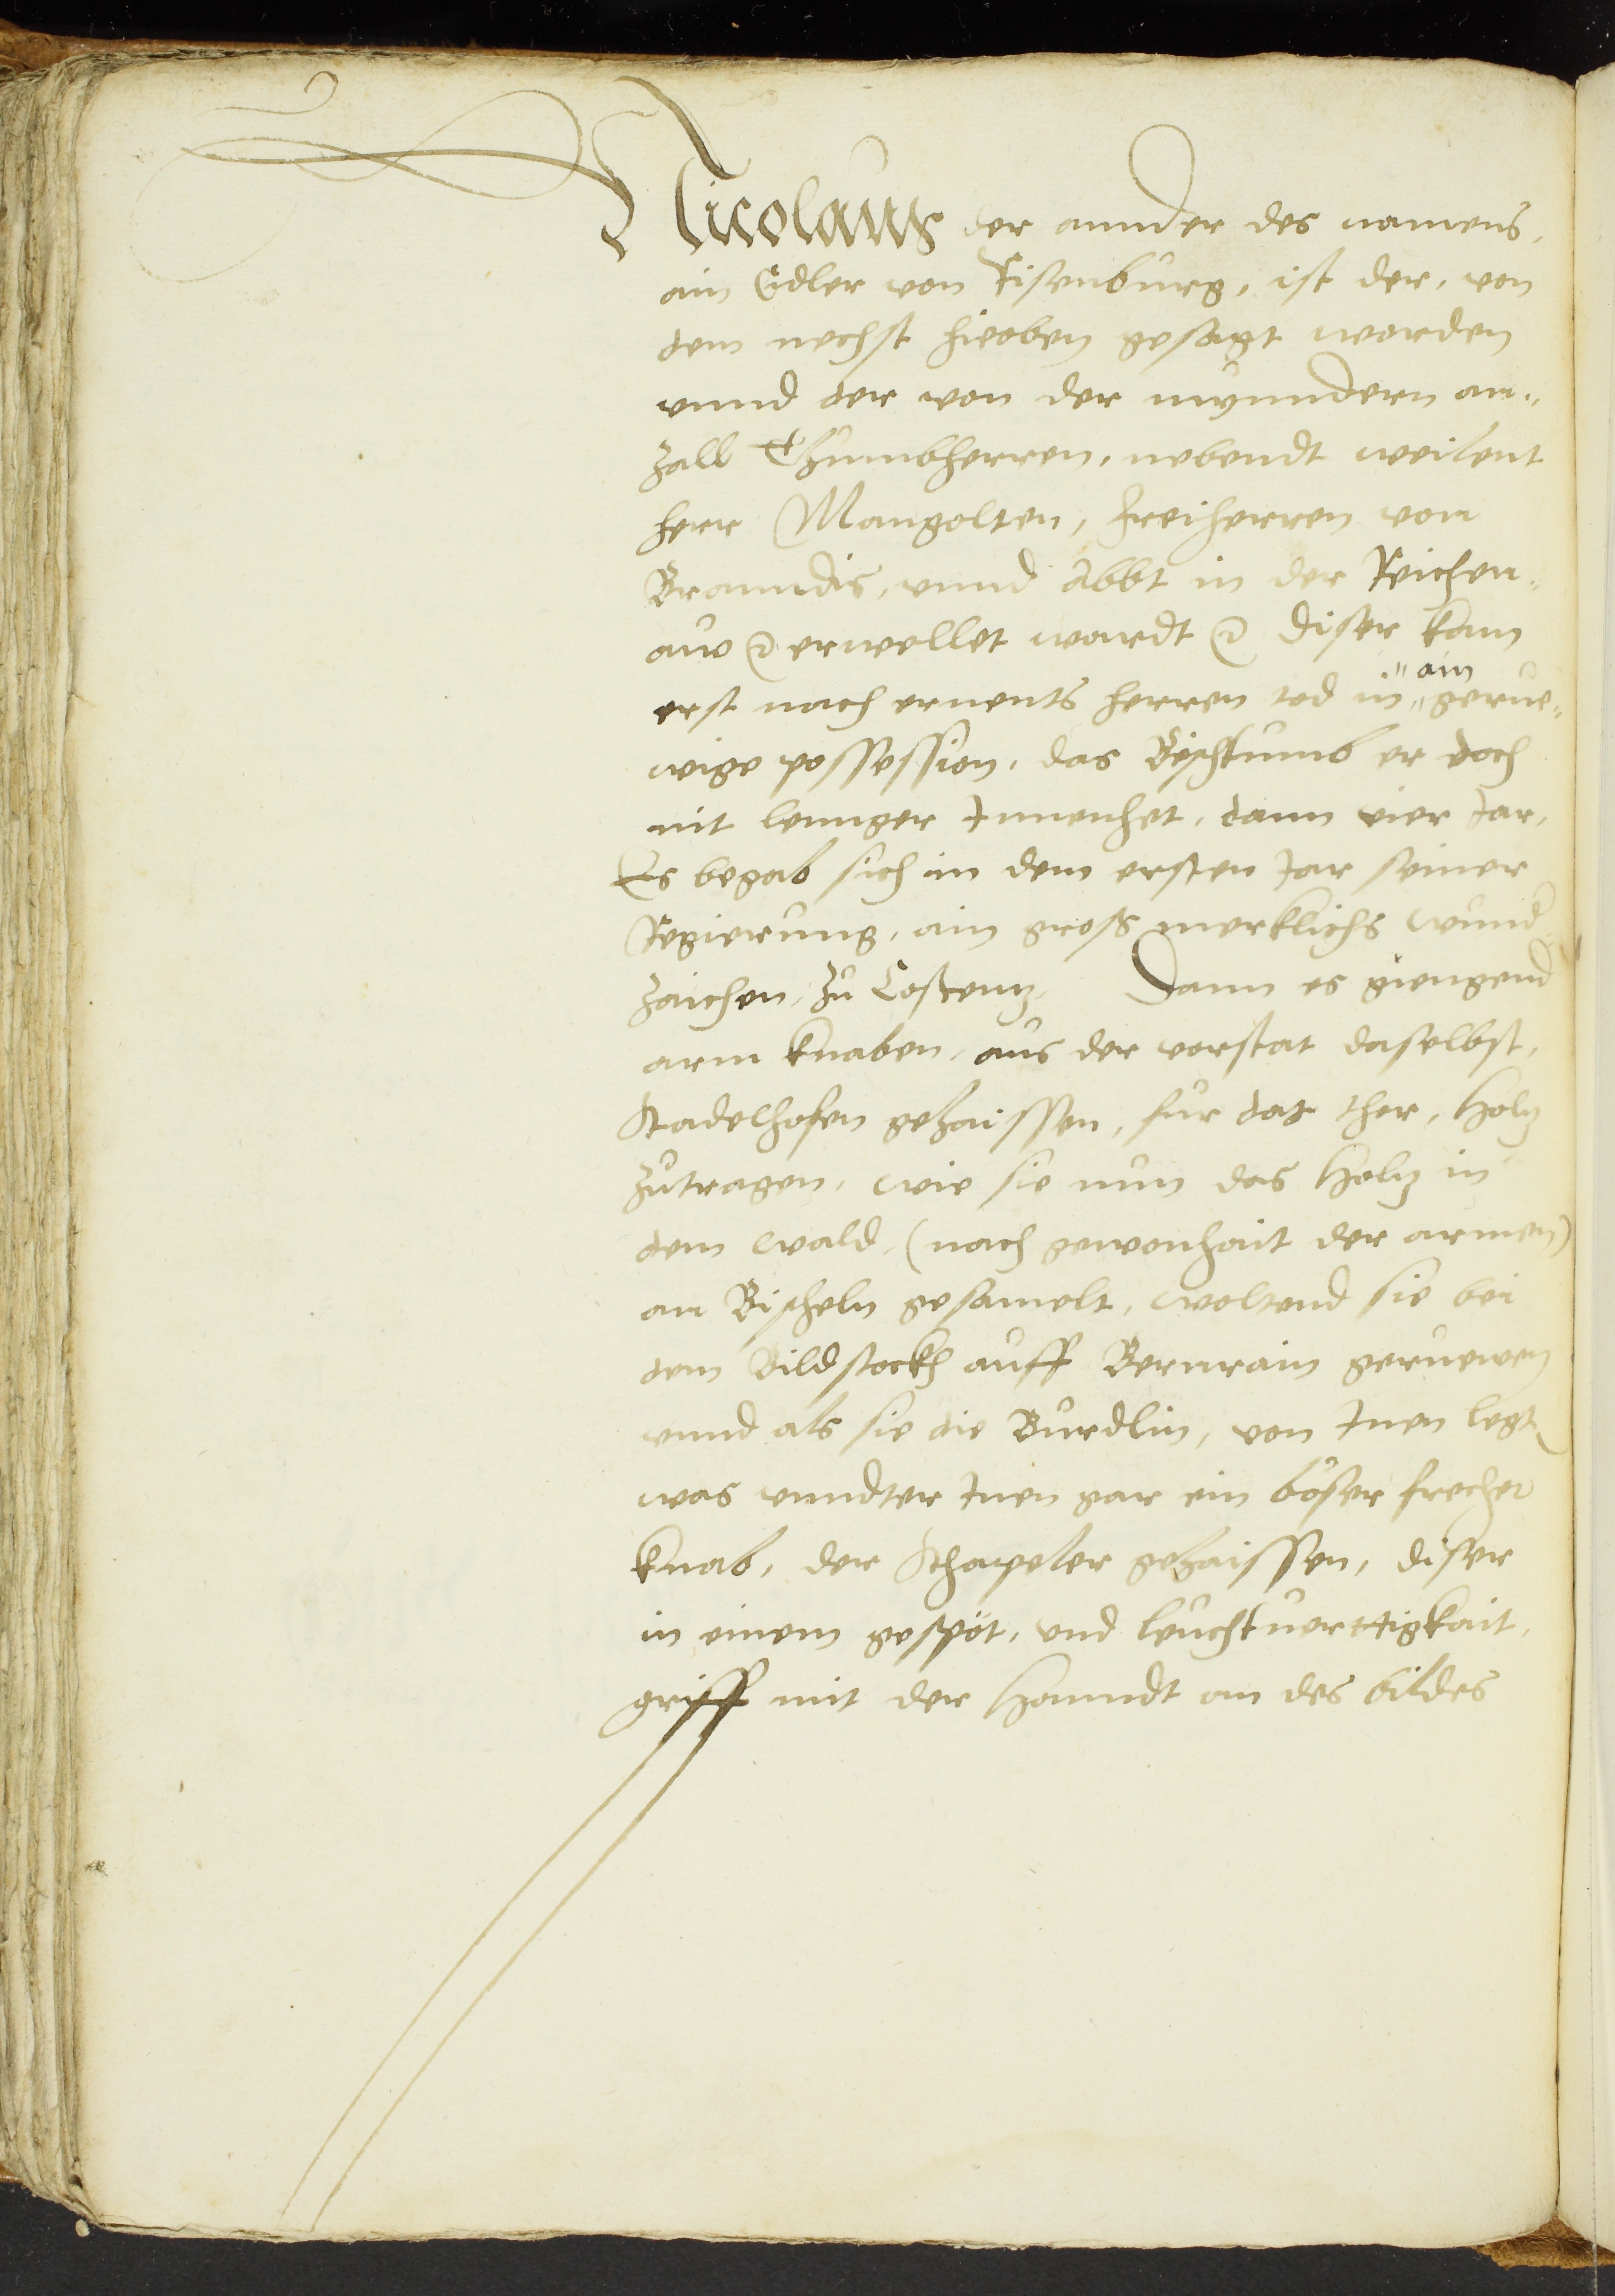 Nicolaus der annder des namens,
ain Edler von Risenburg, ist der, von
dem nechst hieoben gesagt worden
vnnd der von der mynndern an¬
zall Thumbherren, nebendt weilent
herr Mangolten, freiherren von
Branndis, vnnd Abbt in der Reichen¬
auw erwellet wardt diser kam
erst nach ernents herren tod in "ain" gerue¬
wige possession, das Bischtumb er doch
nit lennger Innenhet, dann vier Jar,
Es begab sich in dem ersten Jar seiner
Regierung, ain gross merklichs wund
zaichen, zu Costentz, Dann es giengend
arm knaben, aus der vorstat daselbst,
Stadelhofen gehaissen, fur das thor, holtz
zutragen, wie sie nun das holtz in
dem wald, (nach gewonhait der armen)
an Bischeln gesamelt, woltend sie bei
dem Bildstockh auff Bernrain geruewen
vnnd als sie die Burdlin, von Inen legt
was vnndter Inen gar ein böser frecher
knab, der Schappeler gehaissen, diser
in einem gespöt, vnd leuchtuerttigkait,
griff mit der hanndt an des bildes